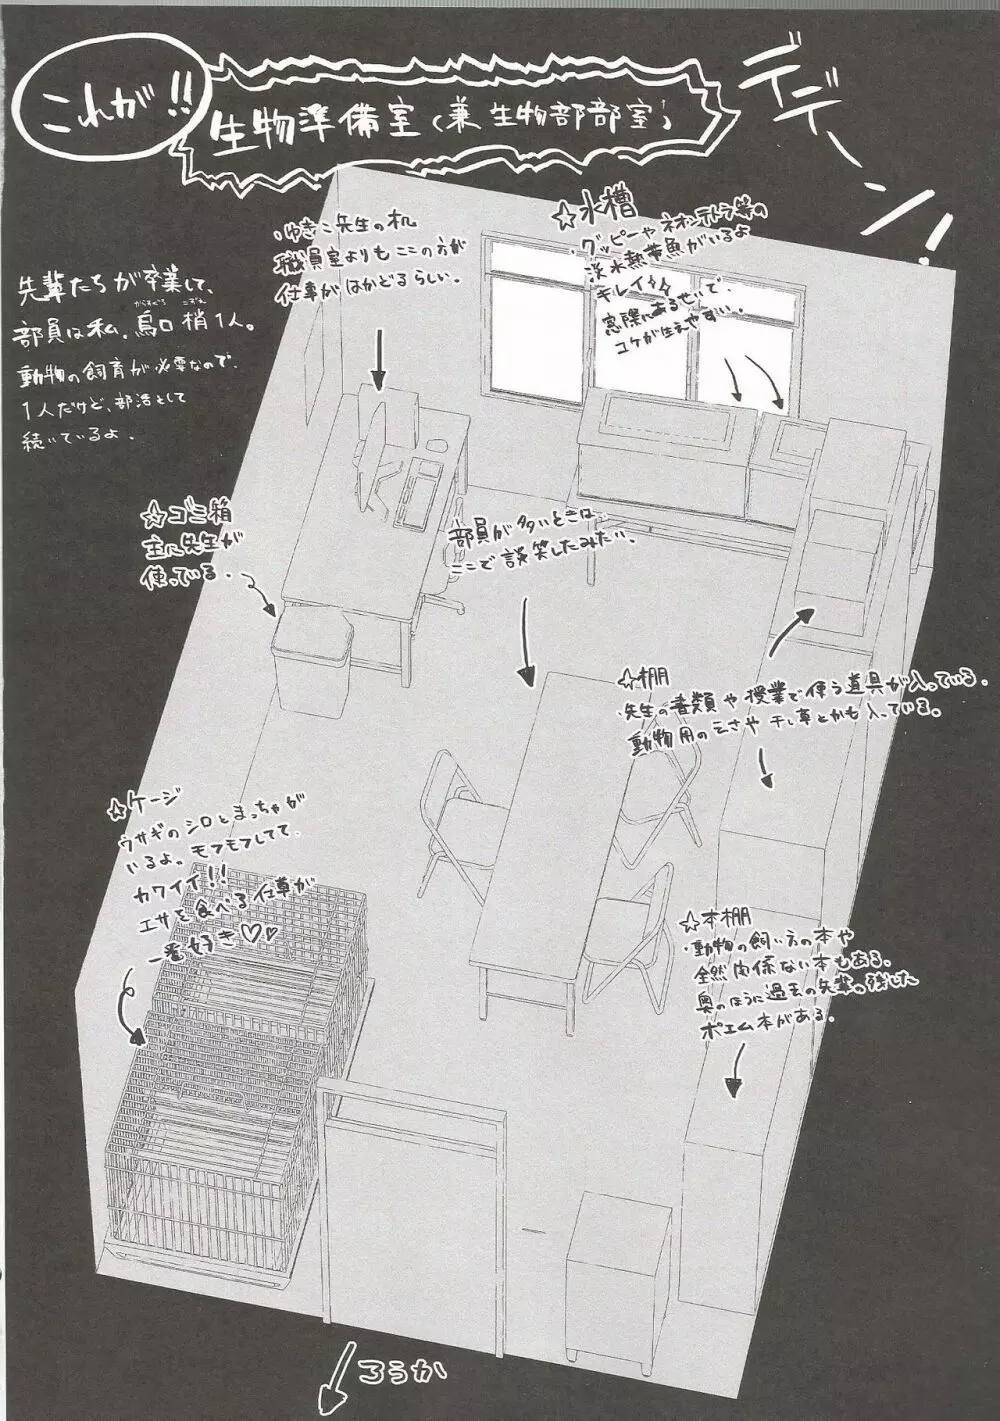 これが!!
生物準備室(兼 生物部部室)
デデーン!
先輩たちが卒業して、
部員は私、烏口 梢1人。
からすぐち こずえ
動物の飼育が必要なので、
1人だけど、部活として
続いているよ.
ゆきこ先生の机
職員室よりもここの方が
仕事がはかどるらしい.
☆水槽
グッピーやネオンテトラ等の
淡水熱帯魚がいるよ
キレイ
窓際にあるせいで、
コケが生えやすい..
☆ゴミ箱
主に先生が
使っている.
部員が多いときは
ここで談笑したみたい.
☆棚
先生の書類や授業で使う道具が入っている.
動物用のえさや干し草とかも入っている.
☆ケージ
ウサギのシロとまっちゃが
いるよ。モフモフしてて
カワイイ!!
エサを食べる仕草が
一番好き♡♡
☆本棚
動物の飼い方の本や
全然関係ない本もある.
奥のほうに過去の先輩の残した
ポエム本がある.
ろうか